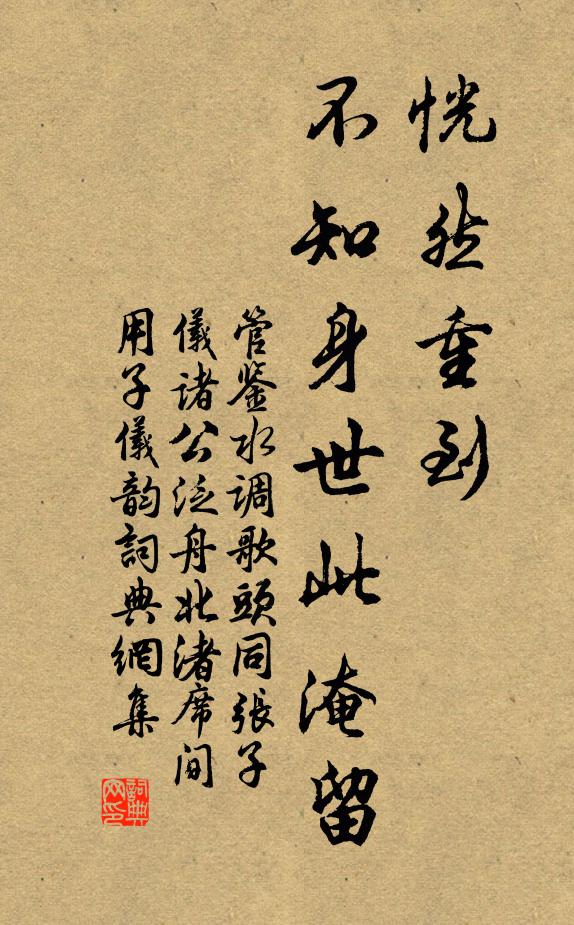 恍然重到
不知身世此淹留
管鉴水调歌頭同張子
儀諸公泛舟北渚席间
用子儀韵詞典網集
詞典网印